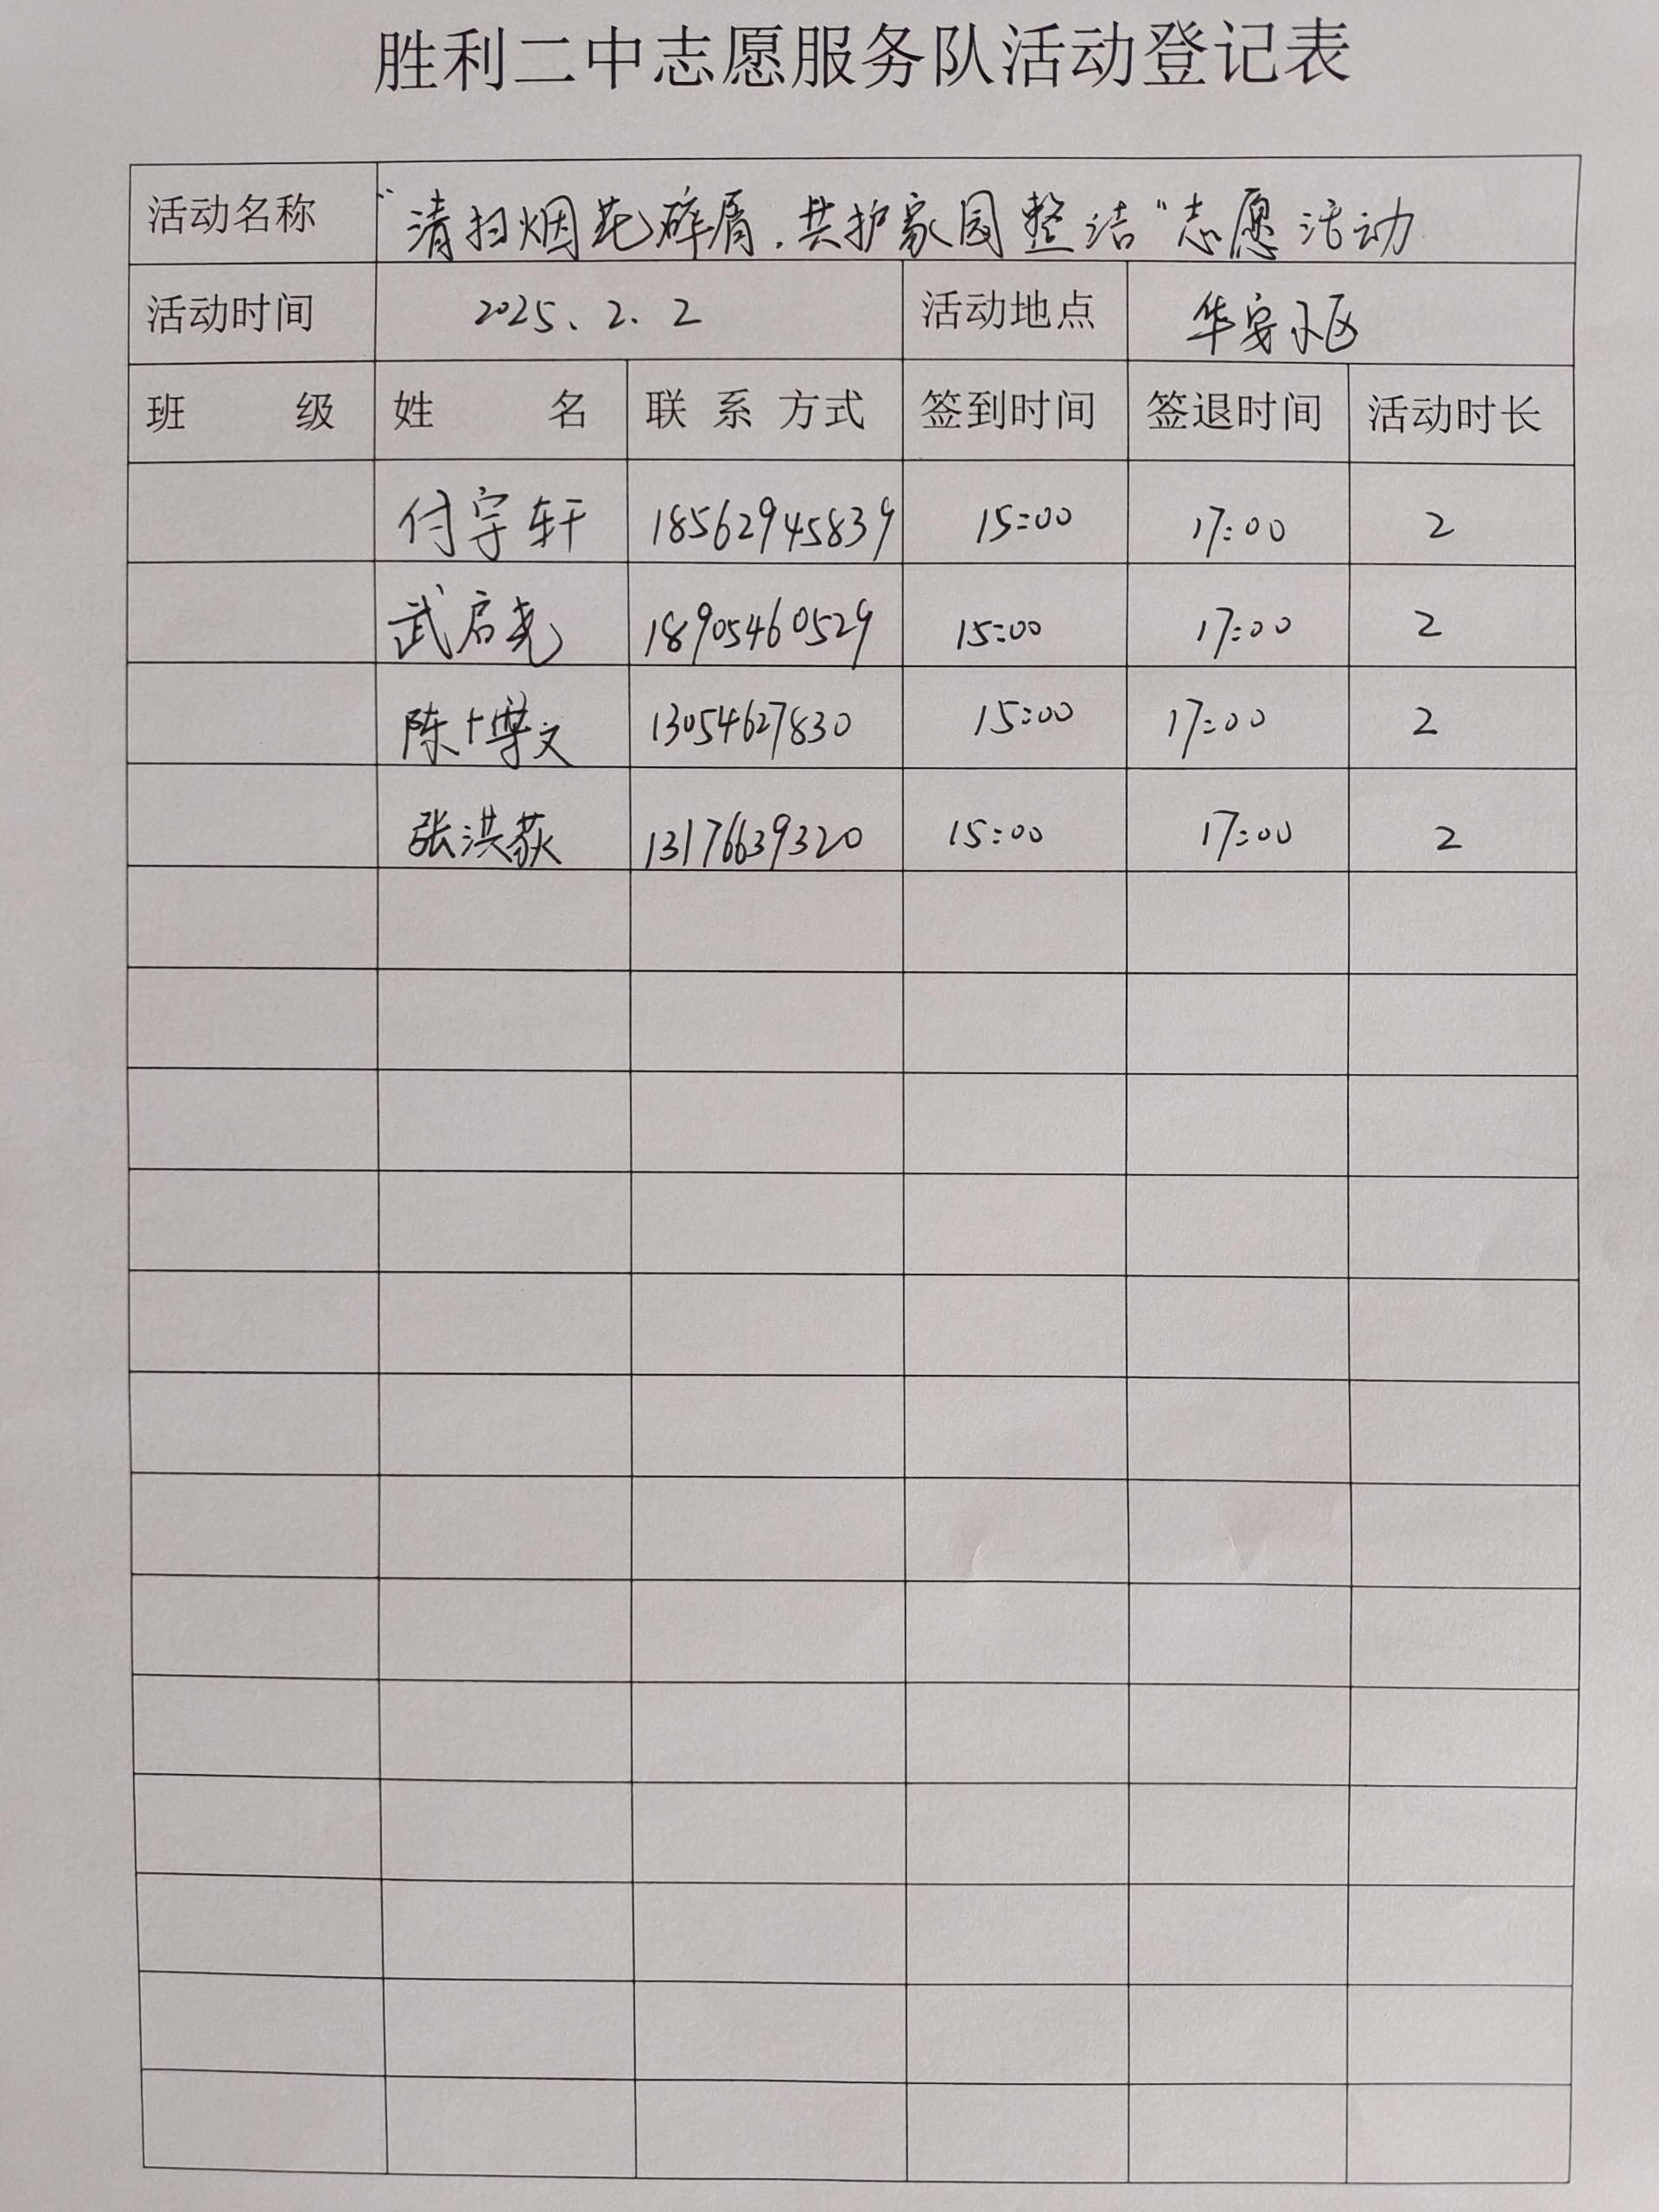 胜利二中志愿服务队活动登记表
活动名称 "清扫烟花碎屑.共护家园整洁"志愿活动
活动时间 2025、2.2 活动地点 华安小区
班 级 姓 名 联 系 方式 签到时间 签退时间 活动时长
付宇轩 18562945839 15:00 17:00 2
武启尧 18905460529 15:00 17:00 2
陈博文 13054627830 15:00 17:00 2
张洪荻 13176639320 15:00 17:00 2